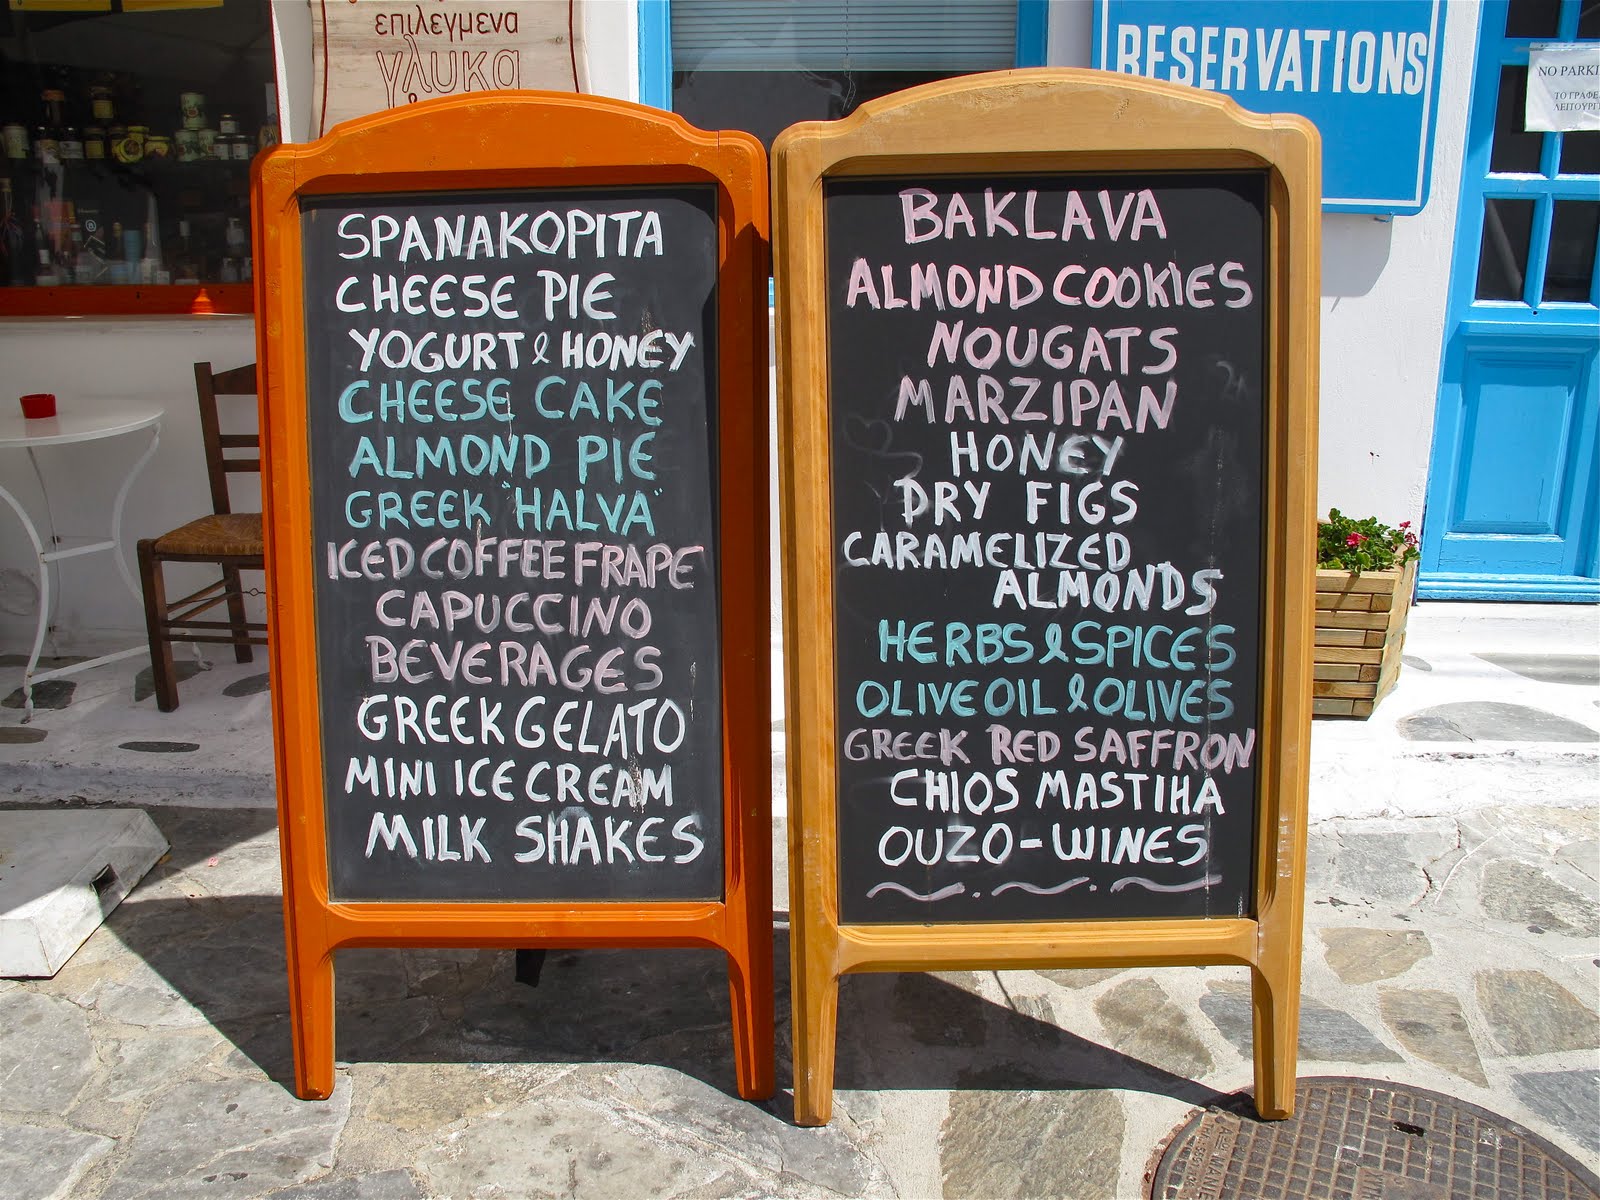 επιλεγμενα
γλυκα
RESERVATIONS
NO PARKI
ΤΟ ΓΡΑΦΕ
ΛΕΙΤΟΥΡΓ
SPANAKOPITA
CHEESE PIE
YOGURT & HONEY
CHEESE CAKE
ALMOND PIE
GREEK "HALVA"
ICED COFFEE FRAPE
CAPUCCINO
BEVERAGES
GREEK GELATO
MINI ICE CREAM
MILK SHAKES
BAKLAVA
ALMOND COOKIES
NOUGATS
MARZIPAN
HONEY
DRY FIGS
CARAMELIZED
ALMONDS
HERBS & SPICES
OLIVE OIL & OLIVES
GREEK RED SAFFRON
CHIOS MASTIHA
OUZO-WINES